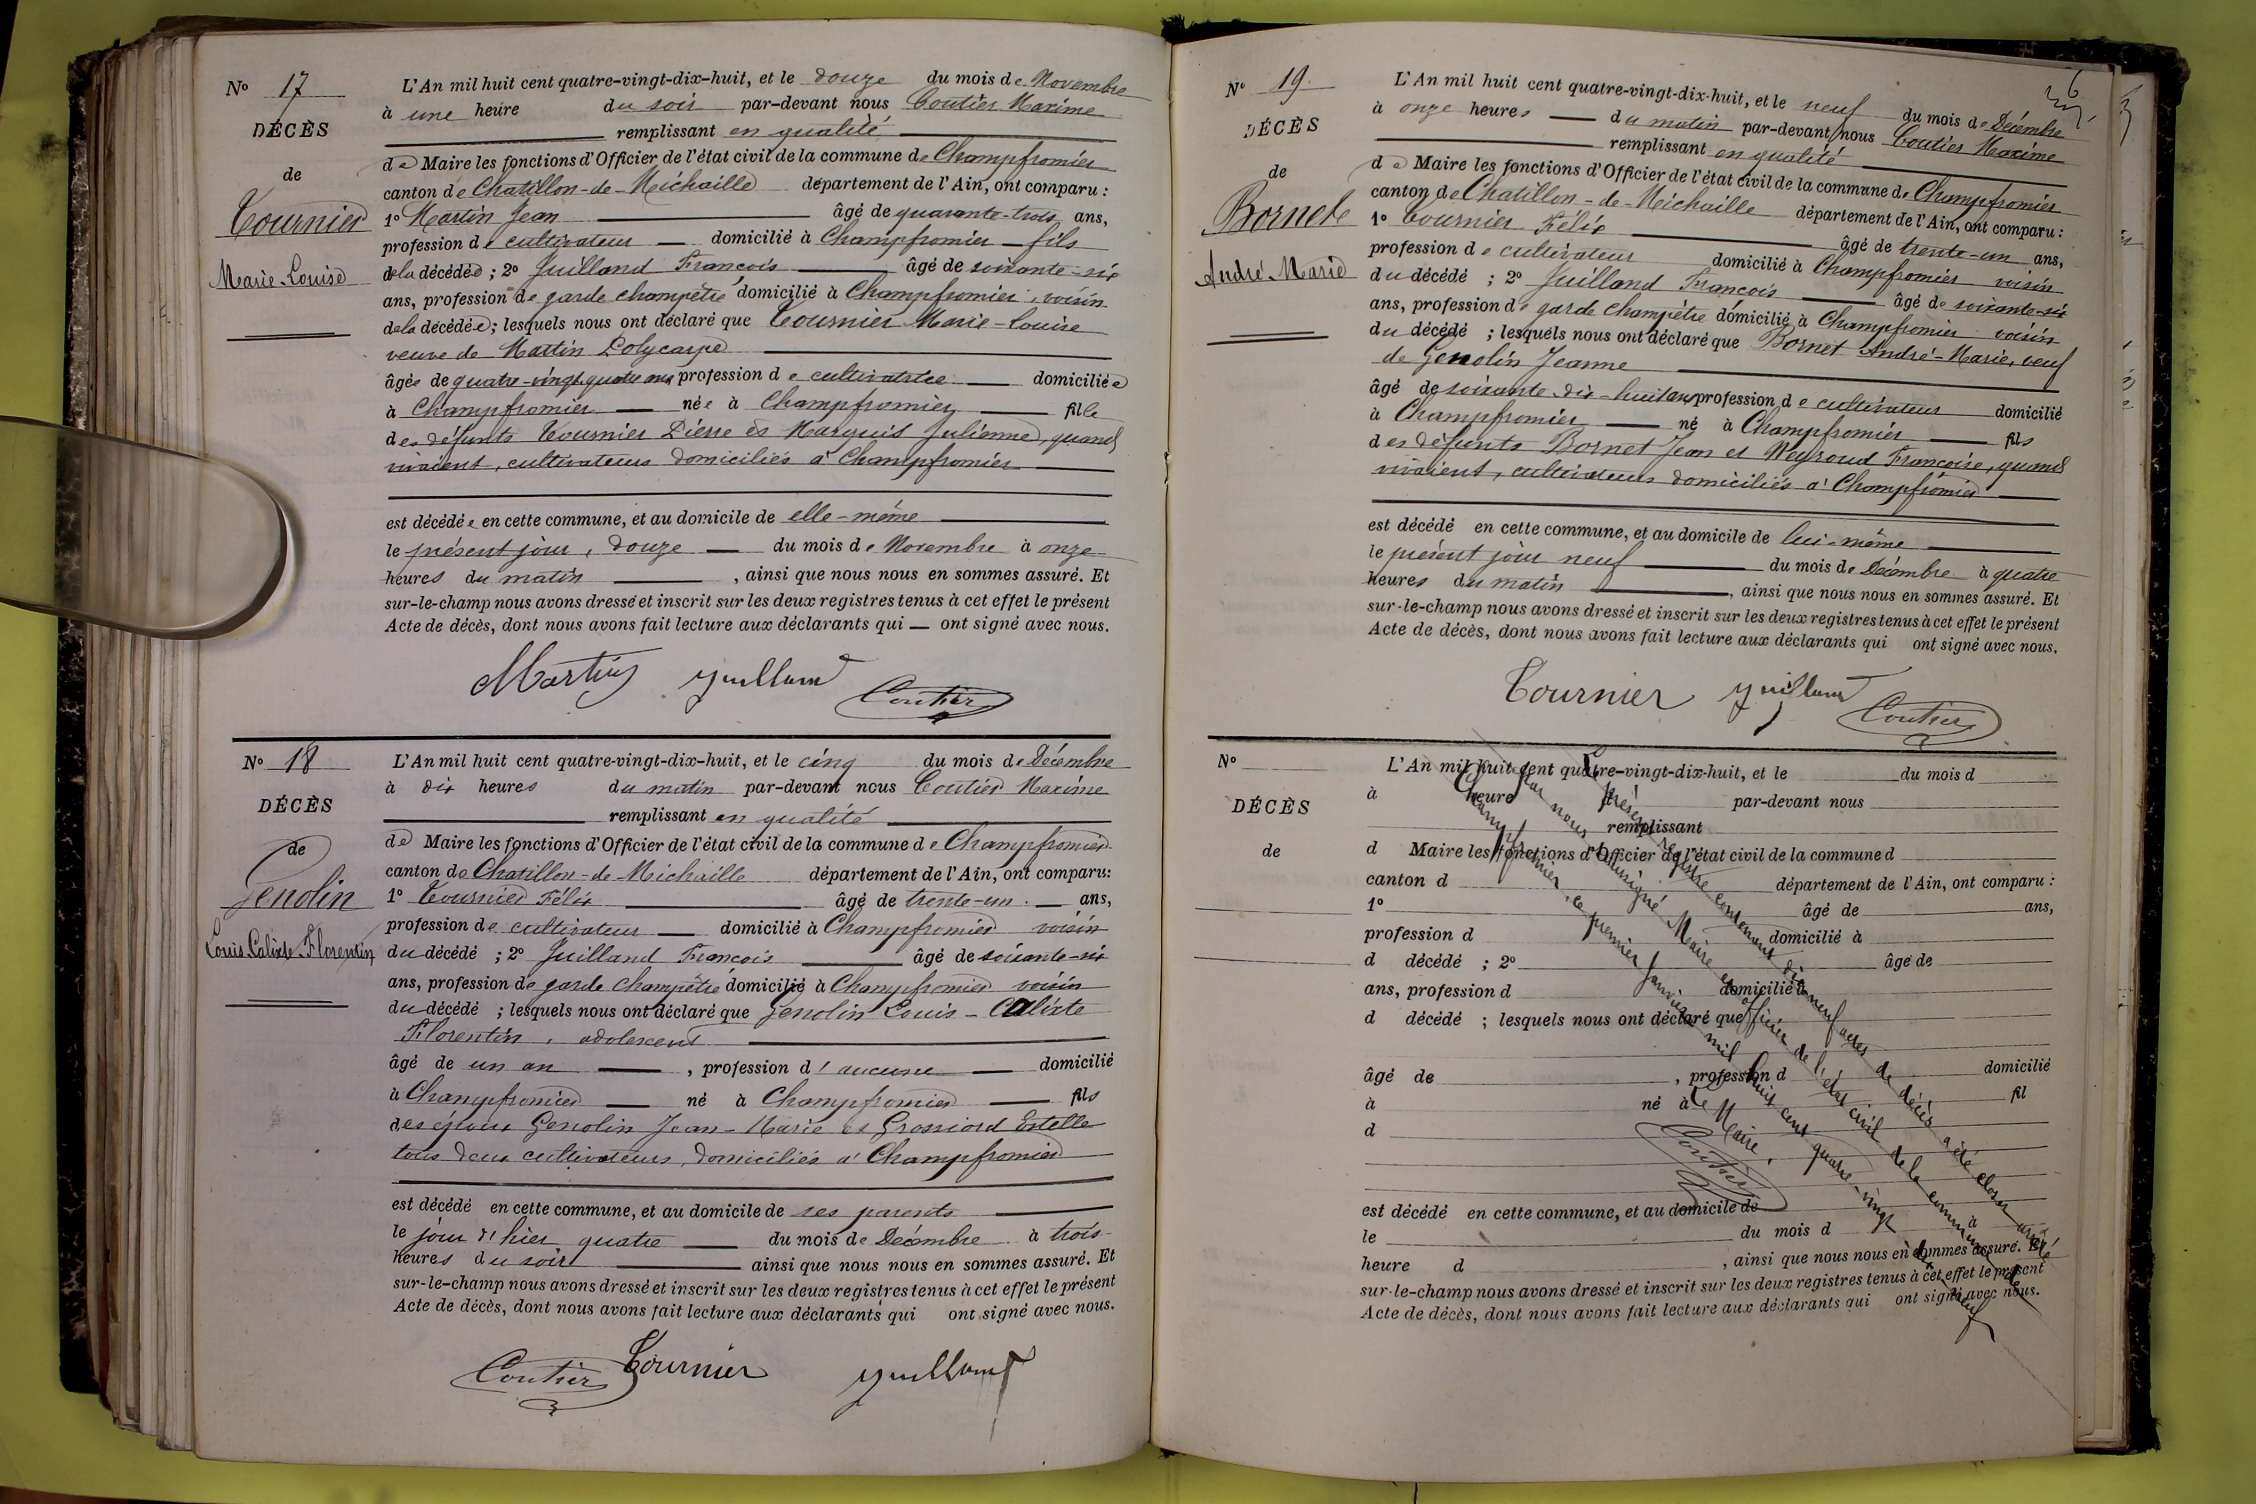 N° 17
DÉCÈS
de
Tournier
Marie-Louise
L'An mil huit cent quatre-vingt-dix-huit, et le douze du mois de Novembre
à une heure du soir par-devant nous Coutier Maxime
remplissant en qualité
de Maire les fonctions d'Officier de l'état civil de la commune de Champfromier
canton de Chatillon-de-Michaille département de l'Ain, ont comparu :
1° Martin Jean âgé de quarante-trois ans,
profession de cultivateur domicilié à Champfromier fils
de la décédée ; 2° Juilland François âgé de soixante-six
ans, profession de garde champêtre domicilié à Champfromier, voisin
de la décédée ; lesquels nous ont déclaré que Tournier Marie-Louise
veuve de Martin Polycarpe
âgée de quatre-vingt-quatre ans profession de cultivatrice domiciliée
à Champfromier née à Champfromier fille
des défunts Tournier Pierre et Marquis Julienne, quand
vivaient, cultivateurs domiciliés à Champfromier
est décédée en cette commune, et au domicile de elle-même
le présent jour, douze du mois de Novembre à onze
heures du matin, ainsi que nous nous en sommes assuré. Et
sur-le-champ nous avons dressé et inscrit sur les deux registres tenus à cet effet le présent
Acte de décès, dont nous avons fait lecture aux déclarants qui ont signé avec nous.
Martin Juilland Coutier
N° 18
DÉCÈS
de
Genolin
Louis-Calixte-Florentin
L'An mil huit cent quatre-vingt-dix-huit, et le cinq du mois de Décembre
à dix heures du matin par-devant nous Coutier Maxime
remplissant en qualité
de Maire les fonctions d'Officier de l'état civil de la commune de Champfromier
canton de Chatillon-de-Michaille département de l'Ain, ont comparu :
1° Tournier Félix âgé de trente-un ans,
profession de cultivateur domicilié à Champfromier voisin
du décédé ; 2° Juilland François âgé de soixante-six
ans, profession de garde champêtre domicilié à Champfromier voisin
du décédé ; lesquels nous ont déclaré que Genolin Louis-Calixte
Florentin, adolescent
âgé de un an, profession d'aucune domicilié
à Champfromier né à Champfromier fils
des époux Genolin Jean-Marie et Grossiord Estelle
tous deux cultivateurs, domiciliés à Champfromier
est décédé en cette commune, et au domicile de ses parents
le jour d'hier quatre du mois de Décembre à trois
heures du soir ainsi que nous nous en sommes assuré. Et
sur-le-champ nous avons dressé et inscrit sur les deux registres tenus à cet effet le présent
Acte de décès, dont nous avons fait lecture aux déclarants qui ont signé avec nous.
Coutier Tournier Juilland
N° 19
DÉCÈS
de
Bornet
André-Marie
L'An mil huit cent quatre-vingt-dix-huit, et le neuf du mois de Décembre
à onze heures du matin par-devant nous Coutier Maxime
remplissant en qualité
de Maire les fonctions d'Officier de l'état civil de la commune de Champfromier
canton de Chatillon-de-Michaille département de l'Ain, ont comparu :
1° Tournier Félix âgé de trente-un ans,
profession de cultivateur domicilié à Champfromier voisin
du décédé ; 2° Juilland François âgé de soixante-six
ans, profession de garde champêtre domicilié à Champfromier voisin
du décédé ; lesquels nous ont déclaré que Bornet André-Marie, veuf
de Genolin Jeanne
âgé de soixante-dix-huit ans profession de cultivateur domicilié
à Champfromier né à Champfromier fils
des défunts Bornet Jean et Neyroud Françoise, quand
vivaient, cultivateurs domiciliés à Champfromier
est décédé en cette commune, et au domicile de lui-même
le présent jour neuf du mois de Décembre à quatre
heures du matin, ainsi que nous nous en sommes assuré. Et
sur-le-champ nous avons dressé et inscrit sur les deux registres tenus à cet effet le présent
Acte de décès, dont nous avons fait lecture aux déclarants qui ont signé avec nous.
Tournier Juilland Coutier
N°
DÉCÈS
de
L'An mil huit cent quatre-vingt-dix-huit, et le du mois d
à heure d par-devant nous
remplissant
d Maire les fonctions d'Officier de l'état civil de la commune d
canton d département de l'Ain, ont comparu :
1° âgé de ans,
profession d domicilié à
d décédé ; 2° âgé de
ans, profession d domicilié à
d décédé ; lesquels nous ont déclaré que
âgé de , profession d domicilié
à né à fil
d
est décédé en cette commune, et au domicile de
le du mois d à
heure d , ainsi que nous nous en sommes assuré. Et
sur-le-champ nous avons dressé et inscrit sur les deux registres tenus à cet effet le présent
Acte de décès, dont nous avons fait lecture aux déclarants qui ont signé avec nous.
Le présent registre contenant dix-neuf actes de décès a été clos et arrêté
par nous soussigné Maire et officier de l'état civil de la commune de
Champfromier, ce premier Janvier mil huit cent quatre-vingt-dix-neuf
Le Maire,
Coutier